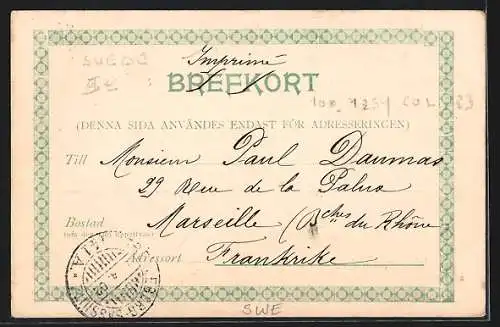 Imprimé
SUEDE
BREFKORT
(DENNA SIDA ANVÄNDES ENDAST FÖR ADRESSERINGEN)
Till Monsieur Paul Daumas
29 Rue de la Palud
Bostad Marseille (Bches du Rhône
Adressort Frankrike
SWE